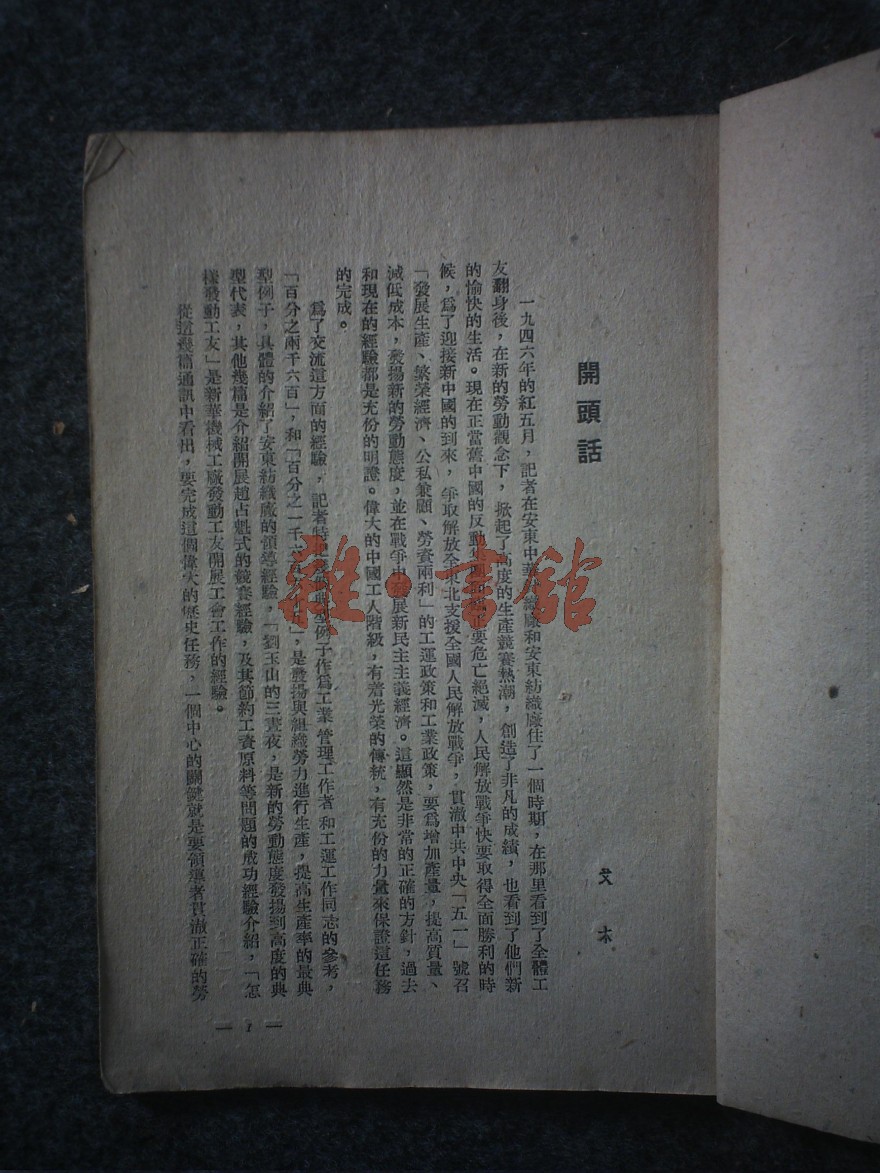 開頭話
戈木
一九四六年的紅五月，記者在安東中華 織廠和安東紡織廠住了一個時期，在那里看到了全體工
友翻身後，在新的勞動觀念下，掀起了高度的生產競賽熱潮，創造了非凡的成績，也看到了他們新
的愉快的生活。現在正當舊中國的反動 要危亡絕滅，人民解放戰爭快要取得全面勝利的時
候，爲了迎接新中國的到來，爭取解放全東北支援全國人民解放戰爭，貫澈中共中央「五一」號召
「發展生產、繁荣經濟、公私兼顧、勞資兩利」的工運政策和工業政策，要爲增加產量，提高質量、
減低成本，發揚新的勞動態度，並在戰爭中發展新民主主義經濟。這顯然是非常的正確的方針，過去
和現在的經驗都是充份的明證。偉大的中國工人階級，有着光榮的傳統，有充份的力量來保證這任務
的完成。
爲了交流這方面的經驗，記者特 例子作爲工業管理工作者和工運工作同志的參考，
「百分之兩千六百」，和「百分之一千 」，是發揚與組織勞力進行生產，提高生產率的最典
型例子，具體的介紹了安東紡織廠的領導經驗，「劉玉山的三晝夜，是新的勞動態度發揚到高度的典
型代表，其他幾篇是介紹開展趙占魁式的競賽經驗，及其節約工資原料等問題的成功經驗介紹，「怎
樣發動工友」是新華機械工廠發動工友開展工會工作的經驗。
從這幾篇通訊中看出，要完成這個偉大的歷史任務，一個中心的關鍵就是要領導者貫澈正確的勞
— 1 —
雜·書館